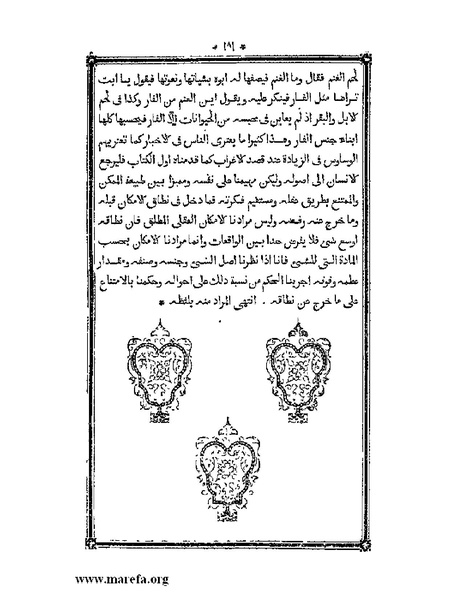 * ١٩١ *
لحم الغنم فقال وما الغنم فيصفها له ابوه بشياتها ونعوتها فيقول يا ابت
تراها مثل الفار فينكر عليه ويقول اين الغنم من الفار وكذا فى لحم
لابل والبقر اذ لم يعاين فى محبسه من الحيوانات إلا الفار فيحسبها كلها
ابناء جنس الفار وهذا كثيرا ما يعترى الناس فى لاخبار كما تعتريهم
الوساوس فى الزيادة عند قصد لاغراب كما قدمناه اول الكتاب فليرجع
لانسان الى اصوله وليكن مهيمنا على نفسه ومميزا بين طبيعة الممكن
والممتنع بطريق عقله ومستقيم فكرته فما دخل فى نطاق لامكان قبله
وما خرج عنه رفضه وليس مرادنا لامكان العقلى المطلق فان نطاقه
اوسع شىء فلا يفرض حدا بين الواقعات وانما مرادنا لامكان بحسب
المادة التى للشىء فانا اذا نظرنا اصل الشىء وجنسه وصنفه ومقدار
عظمه وقوته اجرينا الحكم من نسبة ذلك على احواله وحكمنا بالامتناع
على ما خرج عن نطاقه . انتهى المراد منه بلفظه *
www.marefa.org